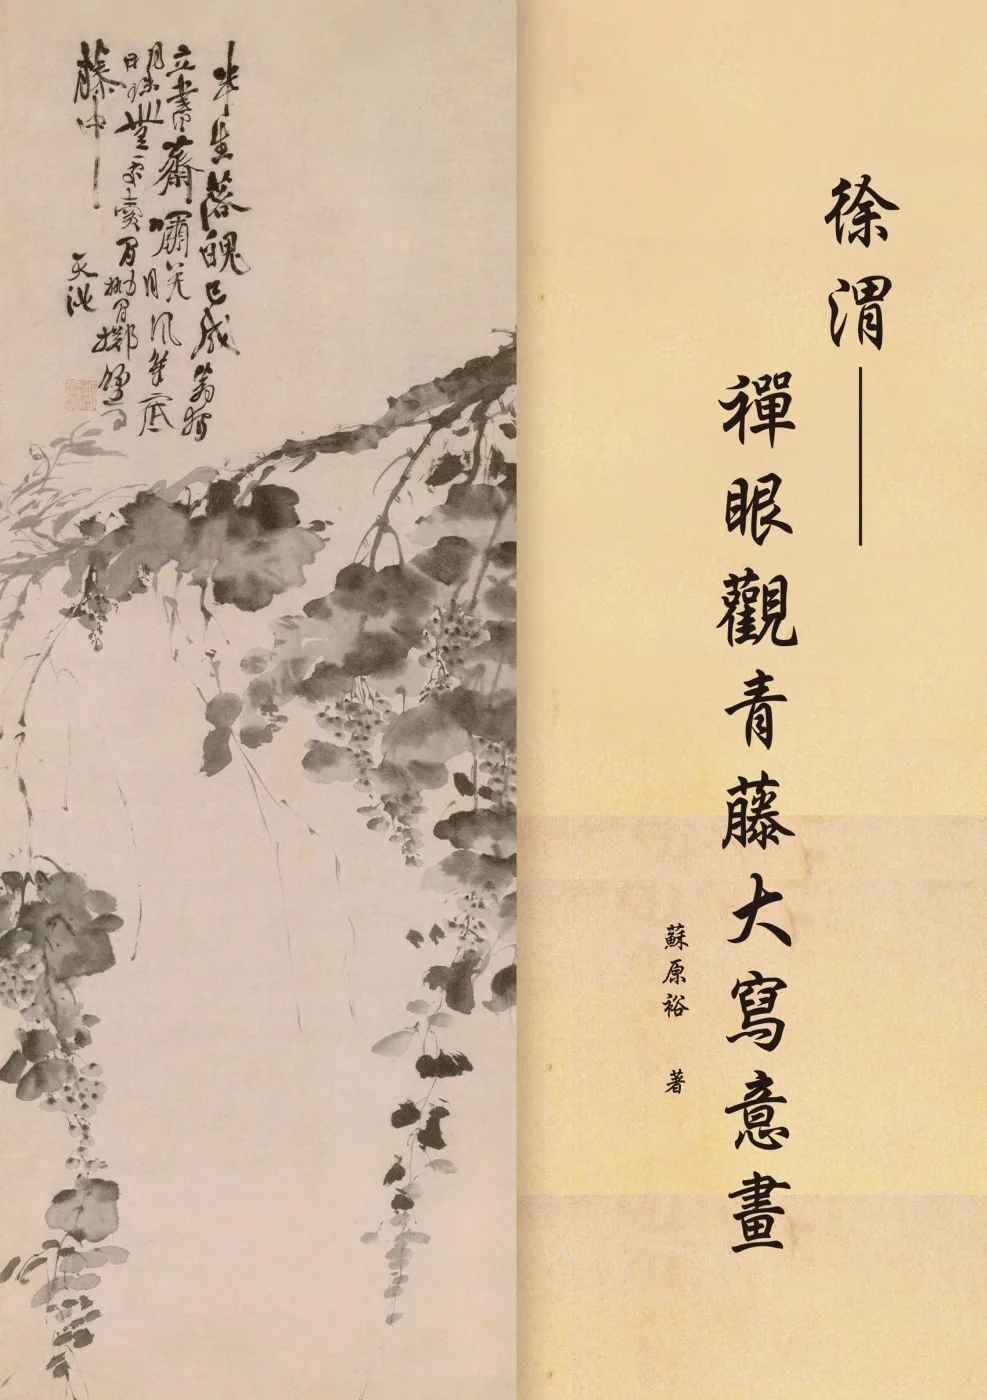 徐渭——
禪眼觀青藤大寫意畫
蘇原裕 著
半生落魄已成翁獨
立書齋嘯晚風筆底
明珠無處賣閒拋閒擲野
藤中
天池